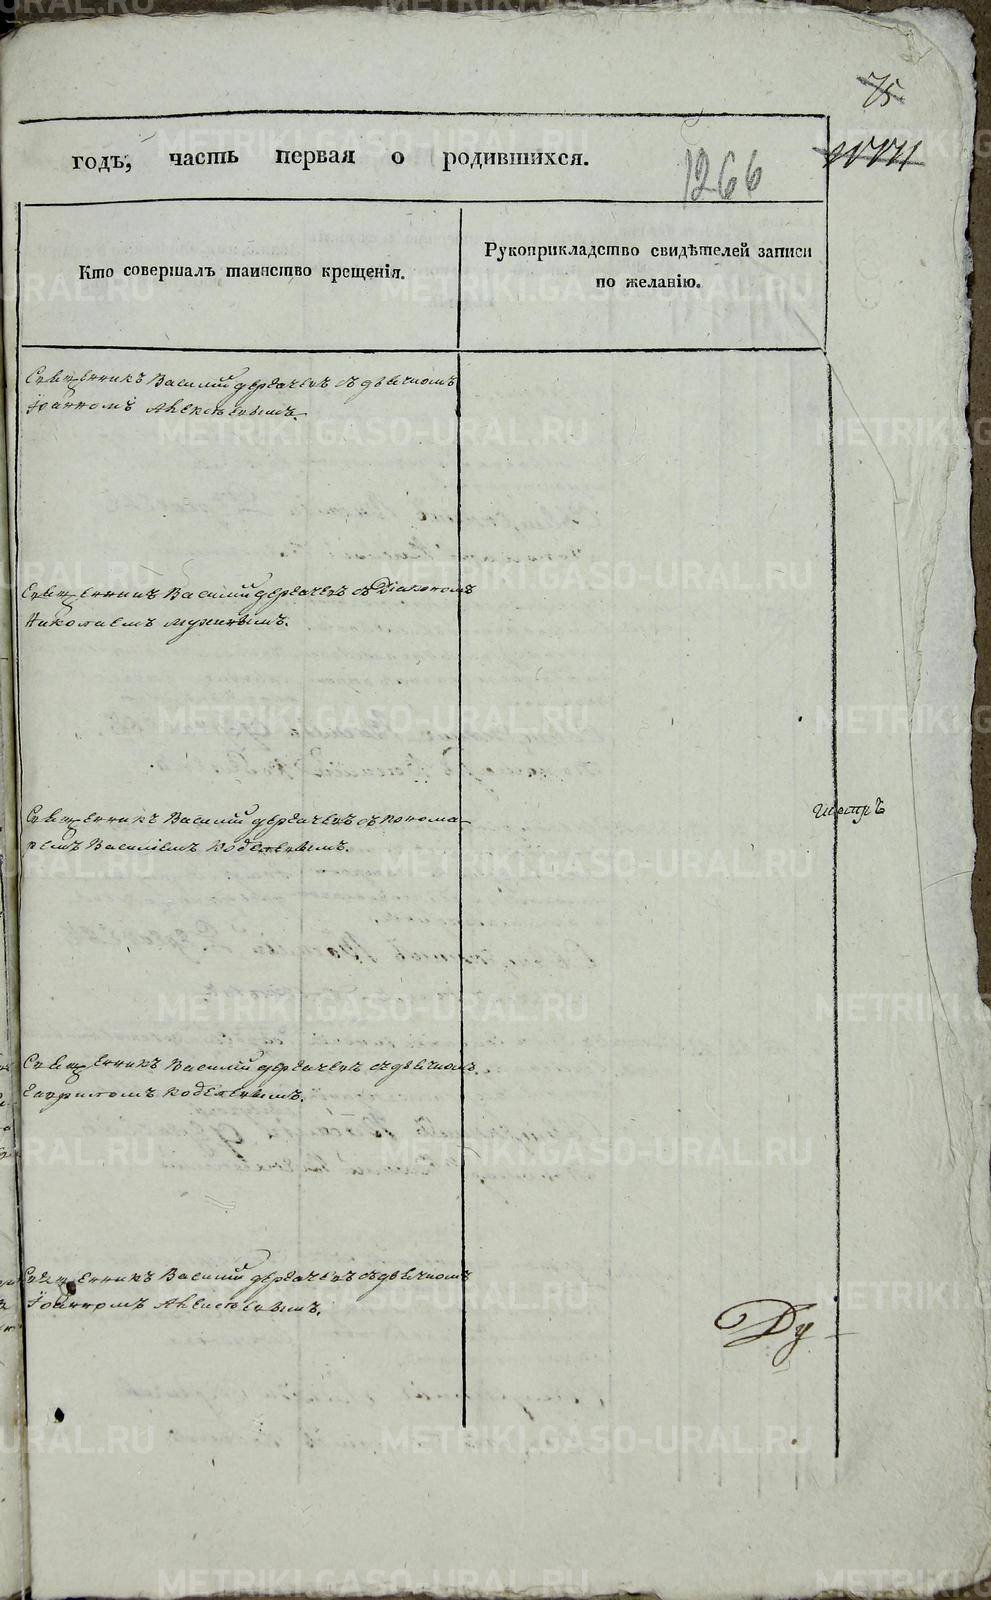 75.
годъ, часть первая о родившихся.
1266
Кто совершалъ таинство крещенія.
Рукоприкладство свидѣтелей записи
по желанію.
Священникъ Василій Дерьачевъ съ дьячкомъ
Іоанномъ Алексѣевымъ.
Священникъ Василій Дерьачевъ съ Діакономъ
Николаемъ
Священникъ Василій Дерьачевъ съ понома-
ремъ Василіемъ Кодратевымъ.
Священникъ Василій Дерьачевъ съ дьячкомъ
Гавриломъ Кодратевымъ.
Священникъ Василій Дерьачевъ съ дьячкомъ
Іоанномъ Алексѣевымъ.
Ду-
METRIKI.GASO-URAL.RU